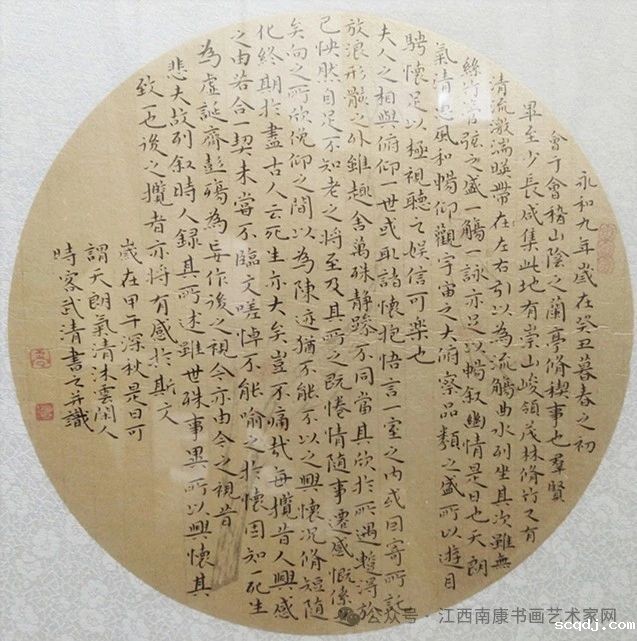 永和九年歲在癸丑暮春之初
會于會稽山陰之蘭亭脩稧事也羣賢
畢至少長咸集此地有崇山峻領茂林脩竹又有
清流激湍暎帶在左右引以為流觴曲水列坐其次雖無
絲竹管弦之盛一觴一詠亦足以暢叙幽情是日也天朗
氣清惠風和暢仰觀宇宙之大俯察品類之盛所以遊目
騁懷足以極視聽之娱信可樂也
夫人之相與俯仰一世或取諸懷抱悟言一室之內或因寄所託
放浪形骸之外雖趣舍萬殊静躁不同當其欣於所遇蹔得於
己怏然自足不知老之將至及其所之既惓情隨事遷感慨係之
矣向之所欣俛仰之間以為陳迹猶不能不以之興懷況脩短隨
化終期於盡古人云死生亦大矣豈不痛哉每攬昔人興感
之由若合一契未嘗不臨文嗟悼不能喻之於懷固知一死生
為虛誕齊彭殤為妄作後之視今亦由今之視昔
悲夫故列叙時人録其所述雖世殊事異所以興懷其
致一也後之攬者亦將有感於斯文
歲在甲午深秋是日可
謂天朗氣清沐雲閑人
時客武清書之并識
公众号·江西南康书画艺术家网
scqdj.com